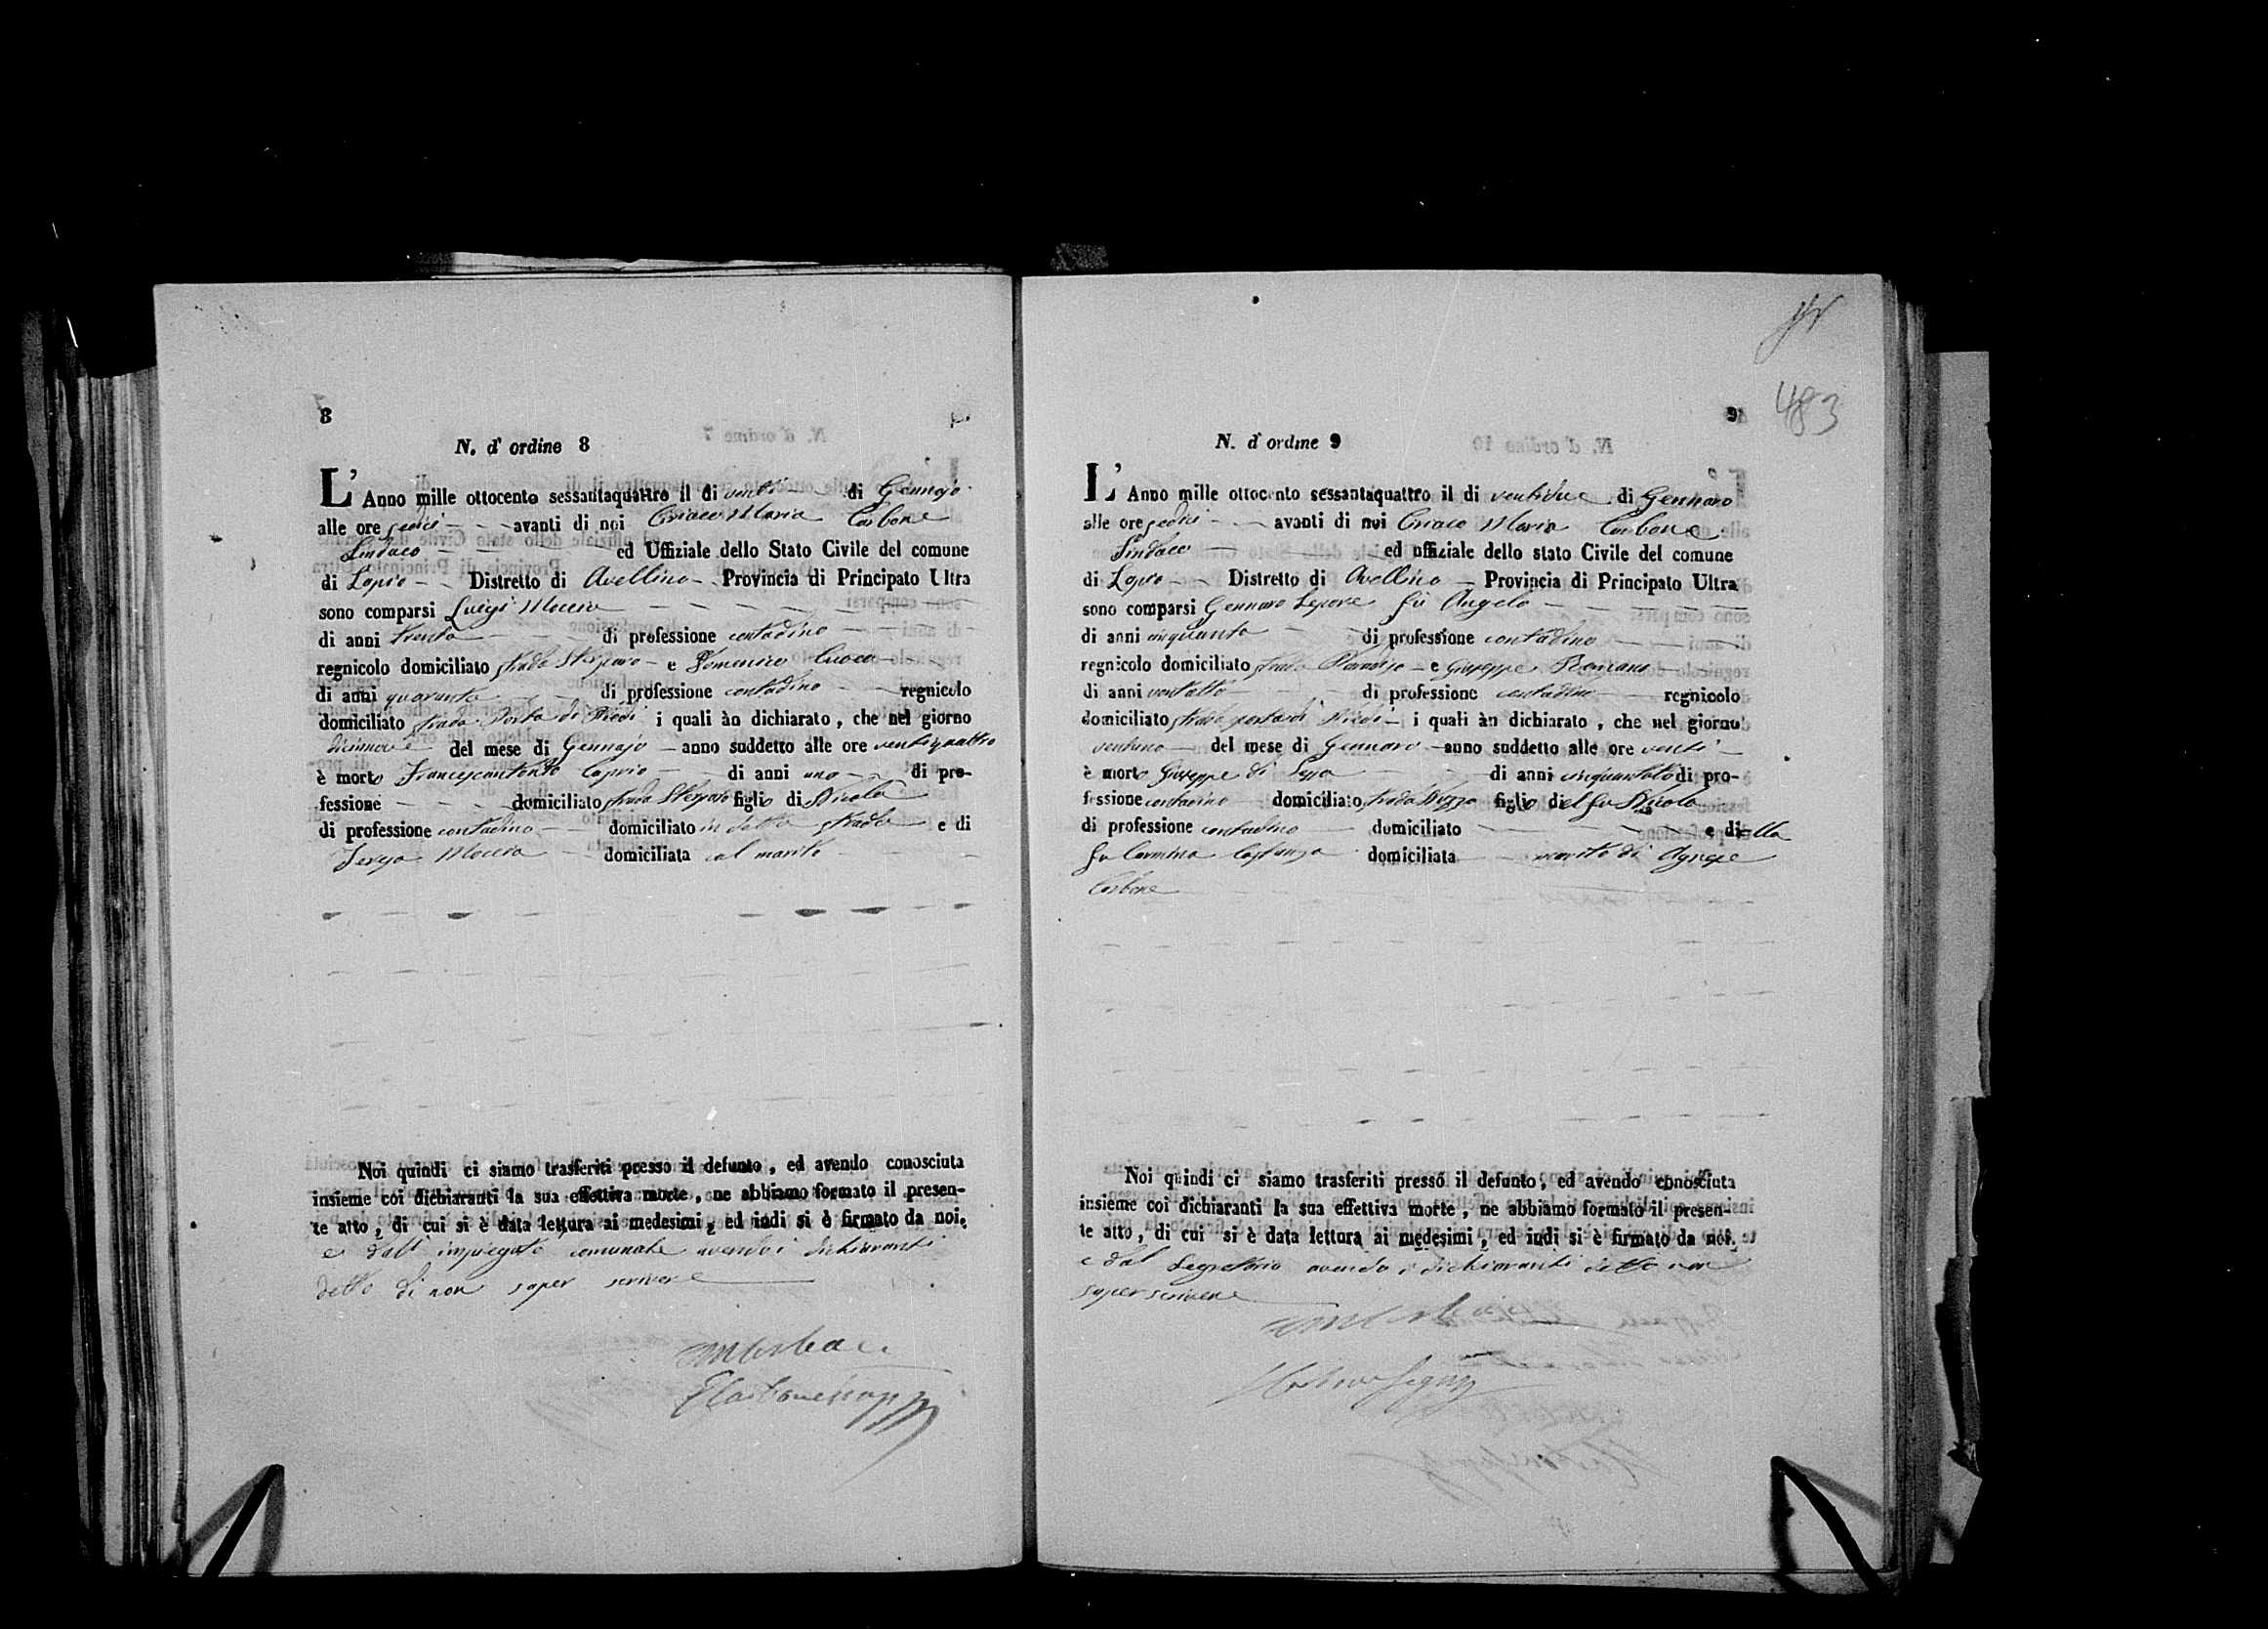 8
N. d' ordine 8
L' Anno mille ottocento sessantaquattro il di venti di Gennajo
alle ore sedici avanti di noi Ciriaco Maria Carbone
Sindaco ed Uffiziale dello Stato Civile del comune
di Lapio Distretto di Avellino Provincia di Principato Ultra
sono comparsi Luigi Moccia
di anni trenta di professione contadino
regnicolo domiciliato strada e Domenico Cuoco
di anni quaranta di professione contadino regnicolo
domiciliato strada Porta di Piedi i quali àn dichiarato, che nel giorno
dicinnove del mese di Gennajo anno suddetto alle ore ventiquattro
è morto Francescantonio Caprio di anni uno di pro-
fessione domiciliato strada figlio di Nicola
di professione contadino domiciliato in detta strada e di
Teresa Moccia domiciliata col marito
Noi quindi ci siamo trasferiti presso il defunto, ed avendo conosciuta
insieme coi dichiaranti la sua effettiva morte, ne abbiamo formato il presen-
te atto, di cui si è data lettura ai medesimi, ed indi si è firmato da noi.
e dall' impiegato comunale avendo i dichiaranti
detto di non saper scrivere
9
483
N. d' ordine 9
L' Anno mille ottocento sessantaquattro il di ventidue di Gennaro
alle ore sedici avanti di noi Ciriaco Maria Carbone
Sindaco ed uffiziale dello stato Civile del comune
di Lapio Distretto di Avellino Provincia di Principato Ultra
sono comparsi Gennaro Lepore fu Angelo
di anni cinquanta di professione contadino
regnicolo domiciliato strada Paradiso e Giuseppe Romano
di anni ventotto di professione contadino regnicolo
domiciliato strada porta di Piedi i quali àn dichiarato, che nel giorno
ventuno del mese di Gennaro anno suddetto alle ore venti
è morto Giuseppe di di anni cinquantotto di pro-
fessione contadino domiciliato strada figlio del fu Nicola
di professione contadino domiciliato e della
fu Carmina Costanza domiciliata marito di Agnese
Carbone
Noi quindi ci siamo trasferiti presso il defunto, ed avendo conosciuta
insieme coi dichiaranti la sua effettiva morte, ne abbiamo formato il presen-
te atto, di cui si è data lettura ai medesimi, ed indi si è firmato da noi.
e dal Segretario avendo i dichiaranti detto non
saper scrivere